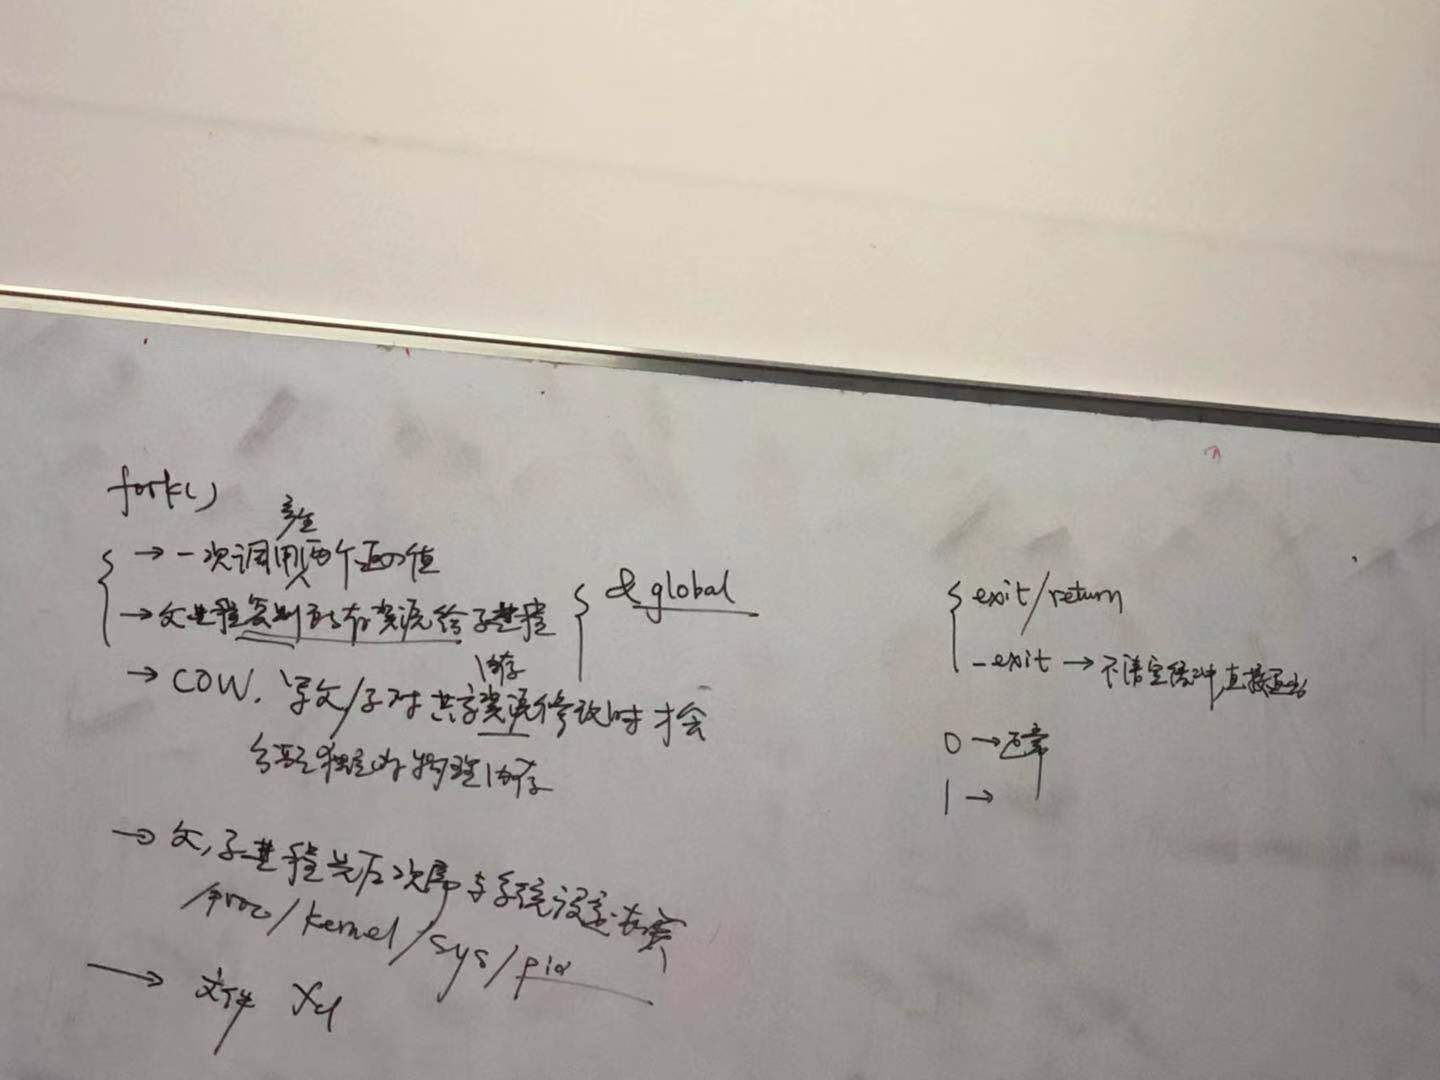 fork()
产生
→ 一次调用两个返回值
→ 父进程复制所有资源给子进程
→ COW. 写父/子对共享资源修改时才会
内存
分配独立的物理内存
→ 父,子进程先后次序与系统设定有关
/proc/kernel/sys/pid
→ 文件
&global
exit/return
_exit → 不清空缓冲,直接退出
0 → 正常
1 →